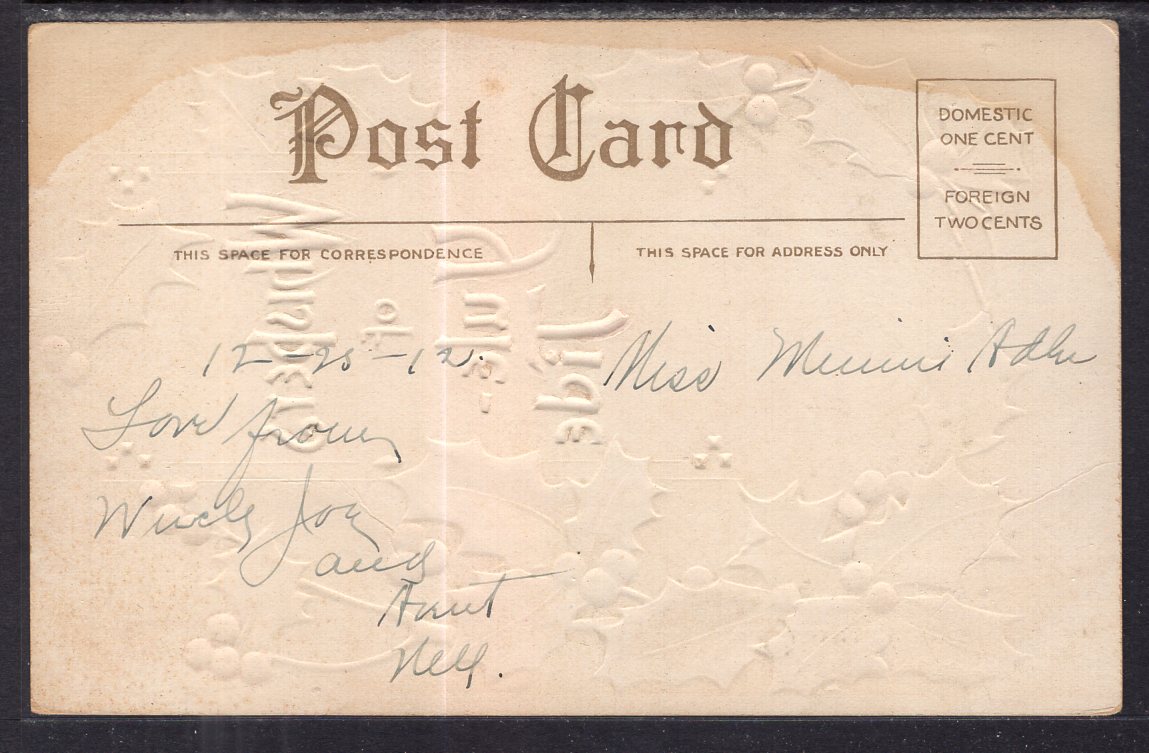 Post Card
DOMESTIC
ONE CENT
FOREIGN
TWO CENTS
THIS SPACE FOR CORRESPONDENCE
THIS SPACE FOR ADDRESS ONLY
12-25-12.
Miss Minnie
Love from
Joe
and
Aunt
Nell.